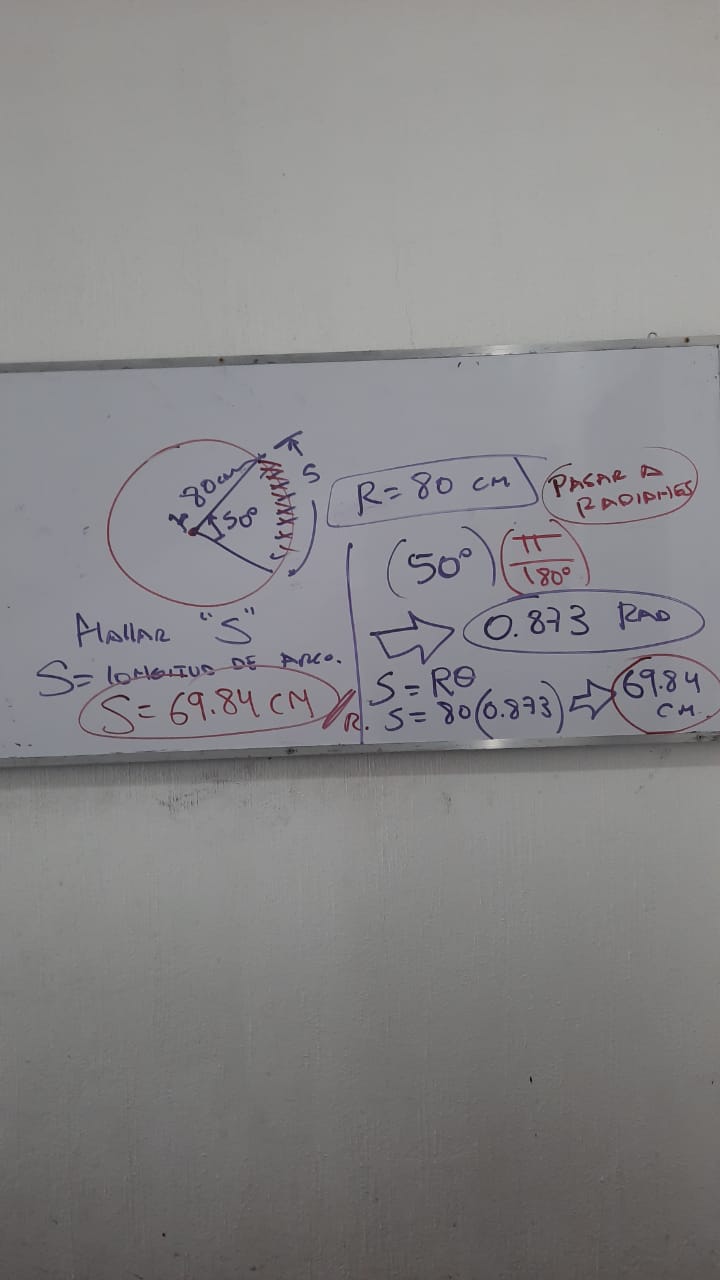 80cm
50°
S
HALLAR "S"
S = LONGITUD DE ARCO.
S = 69.84 CM //R.
R = 80 CM
PASAR A
RADIANES
(50°) (π/180°)
0.873 RAD
S = Rθ
S = 80(0.873) ⇨ 69.84
CM